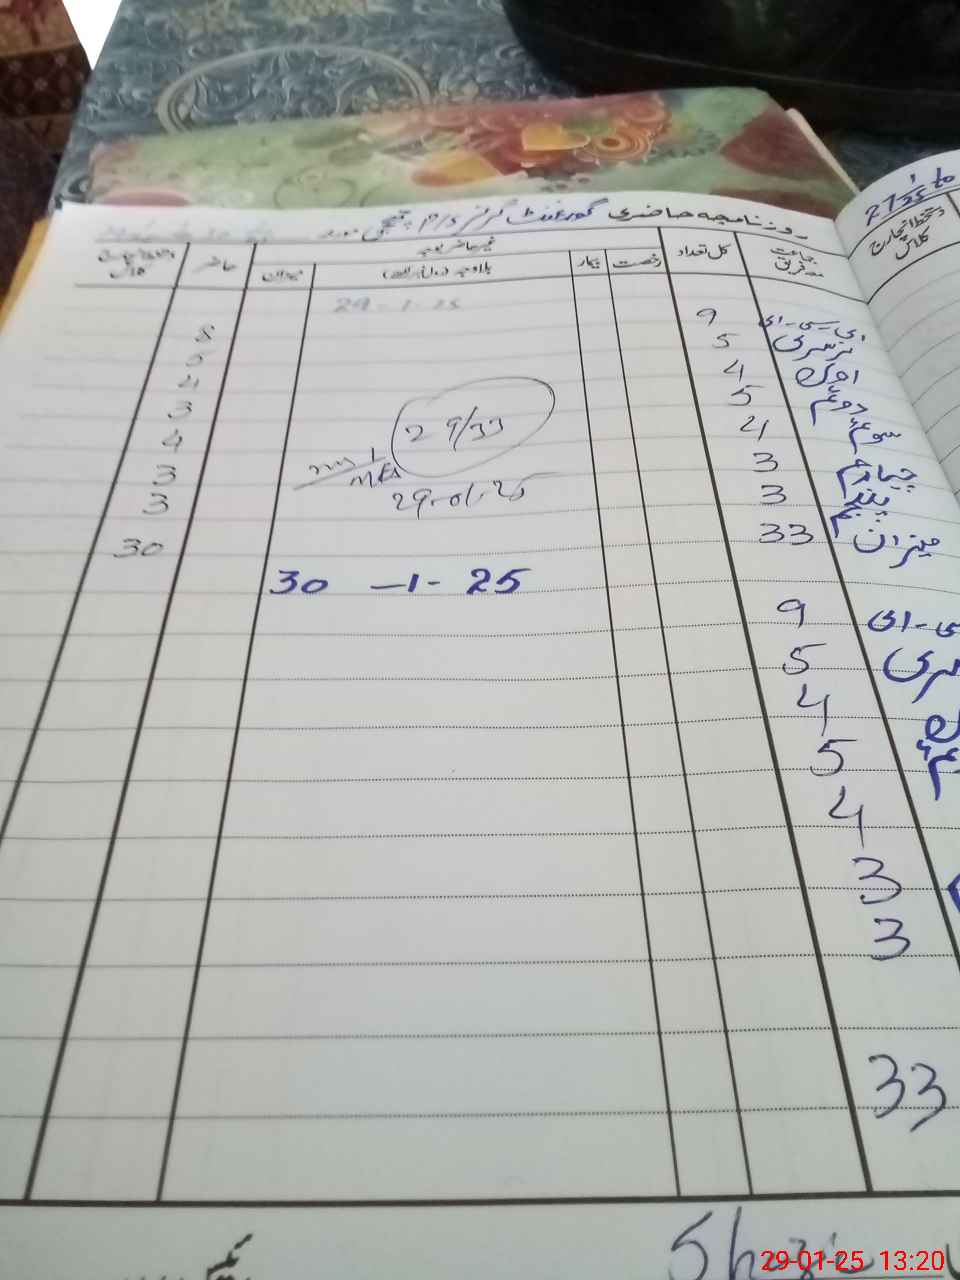 27 1/25
روزنامچہ حاضری گورنمنٹ گرلز P/S
دستخط انچارج کلاس
جماعت معہ فریق
کل تعداد
غیر حاضر بوجہ
رخصت
بیکار
بلاوجہ
میزان
حاضر
کلاس
29-1-25
ای-سی-ای 9 8
نرسری 5 5
اول 4 4
دوئم 5 3
سوئم 4 4
چہارم 3 3
پنجم 3 3
میزان 33 30
29/33
29-01-25
30 -1- 25
سی-ای 9
سری 5
4
5
4
3
3
33
29-01-25 13:20